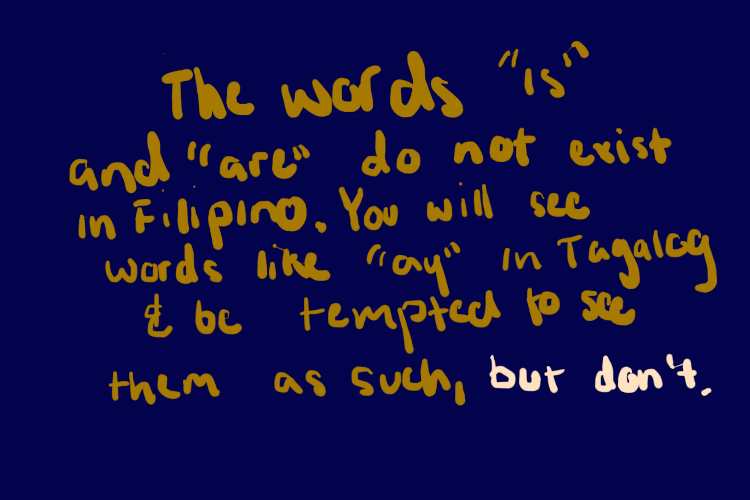 The words "is"
and "are" do not exist
in Filipino. You will see
words like "ay" in Tagalog
& be tempted to see
them as such, but don't.